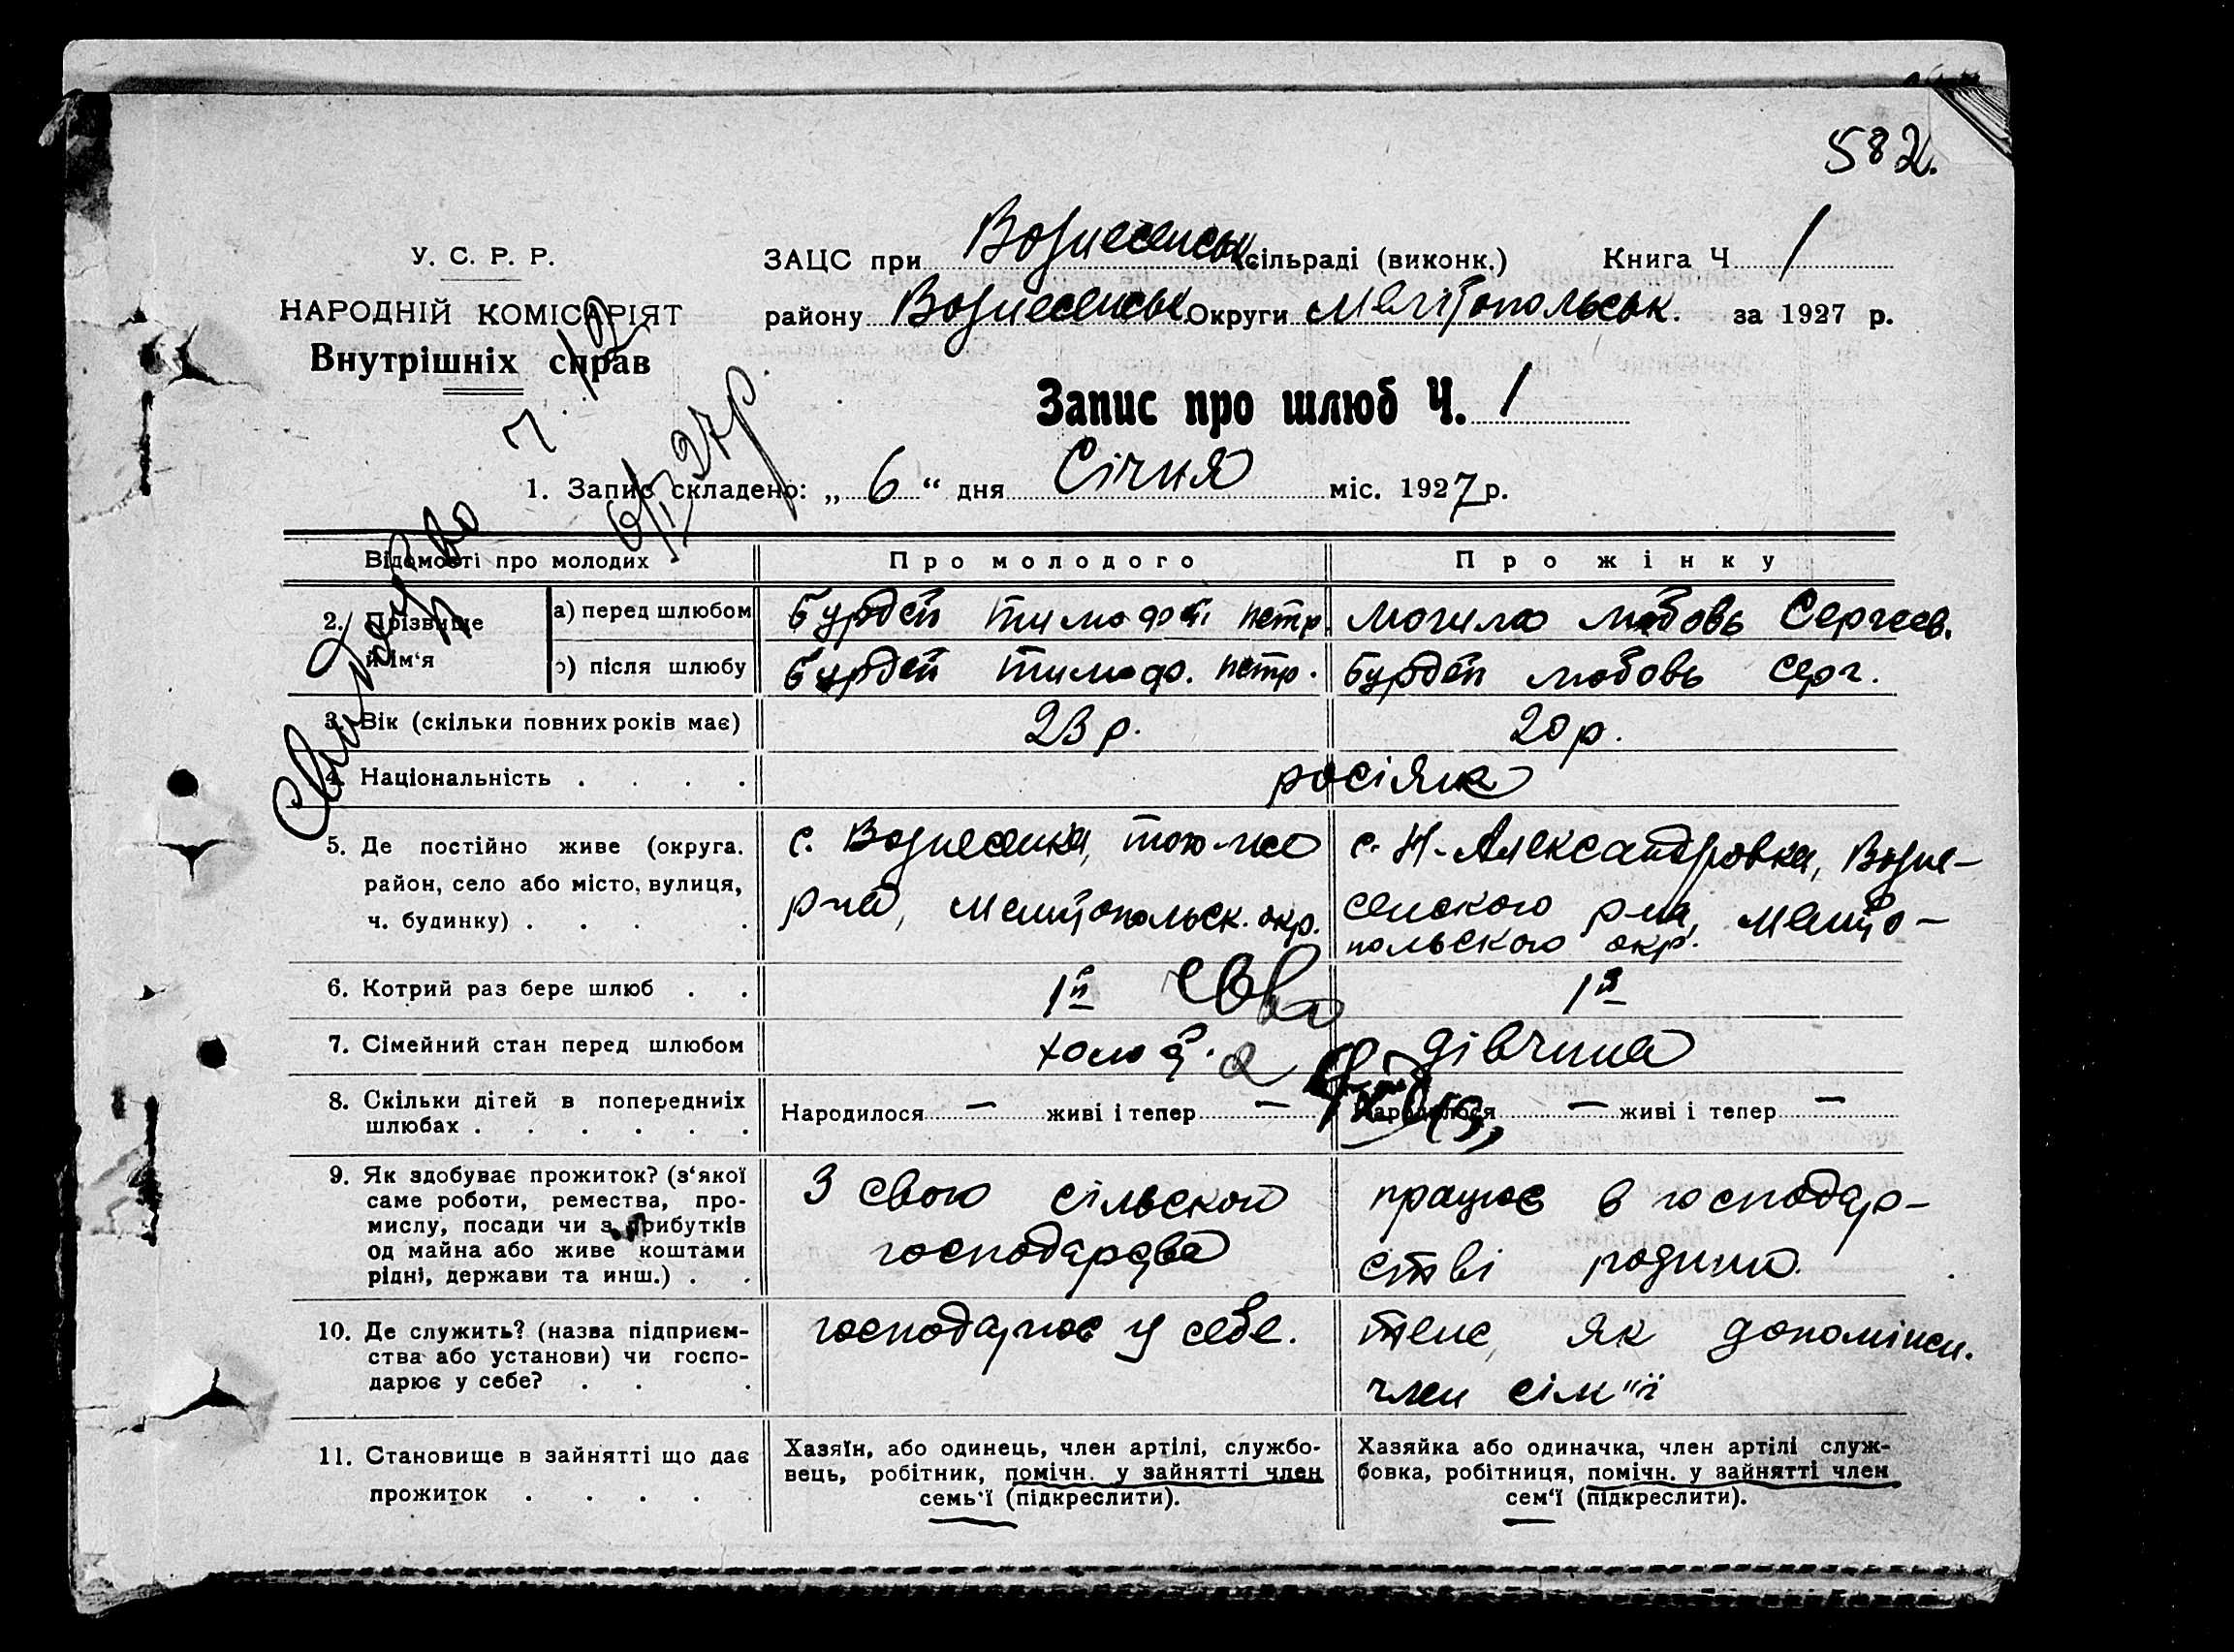 582.
У. С. Р. Р.
НАРОДНІЙ КОМІСАРІЯТ
Внутрішніх справ
ЗАЦС при Вознесенськ сільраді (виконк.) Книга Ч 1
району Вознесенськ Округи Мелітопольськ. за 1927 р.
Запис про шлюб Ч. 1
6/I 27р.
1. Запис складено: „ 6 “ дня Січня міс. 1927 р.
Відомості про молодих Про молодого Про жінку
2. Прізвище й ім‘я
а) перед шлюбом Бурдей Тимофей Петр. Могила Любовь Сергеев.
б) після шлюбу Бурдей Тимоф. Петр. Бурдей Любовь Серг.
3. Вік (скільки повних років має) 23 р. 20 р.
4. Національність . . . . росіяне
5. Де постійно живе (округа. район, село або місто, вулиця, ч. будинку) . . . .
с. Вознесенка, того же
р-на, Мелітопольск. окр.
с. Н-Александровка, Возне-
сенского р-на, Меліто-
польского окр.
6. Котрий раз бере шлюб . . 1й 1й
7. Сімейний стан перед шлюбом холост. дівчина
8. Скільки дітей в попередниіх
шлюбах . . . . . .
Народилося — живі і тепер — Народилося — живі і тепер —
9. Як здобуває прожиток? (з‘якої
саме роботи, ремества, про-
мислу, посади чи з прибутків
од майна або живе коштами
рідні, держави та инш.) . .
З свого сільского
господарства
працює в господар-
стві родини.
10. Де служить? (назва підприєм-
ства або установи) чи госпо-
дарює у себе? . . .
господарює у себе.
теж, як допоміжн.
член сім"ї
11. Становище в зайнятті що дає
прожиток . . . . .
Хазяїн, або одинець, член артілі, службо-
вець, робітник, помічн. у зайнятті член
семь‘ї (підкреслити).
Хазяйка або одиначка, член артілі служ-
бовка, робітниця, помічн. у зайнятті член
сем‘ї (підкреслити).